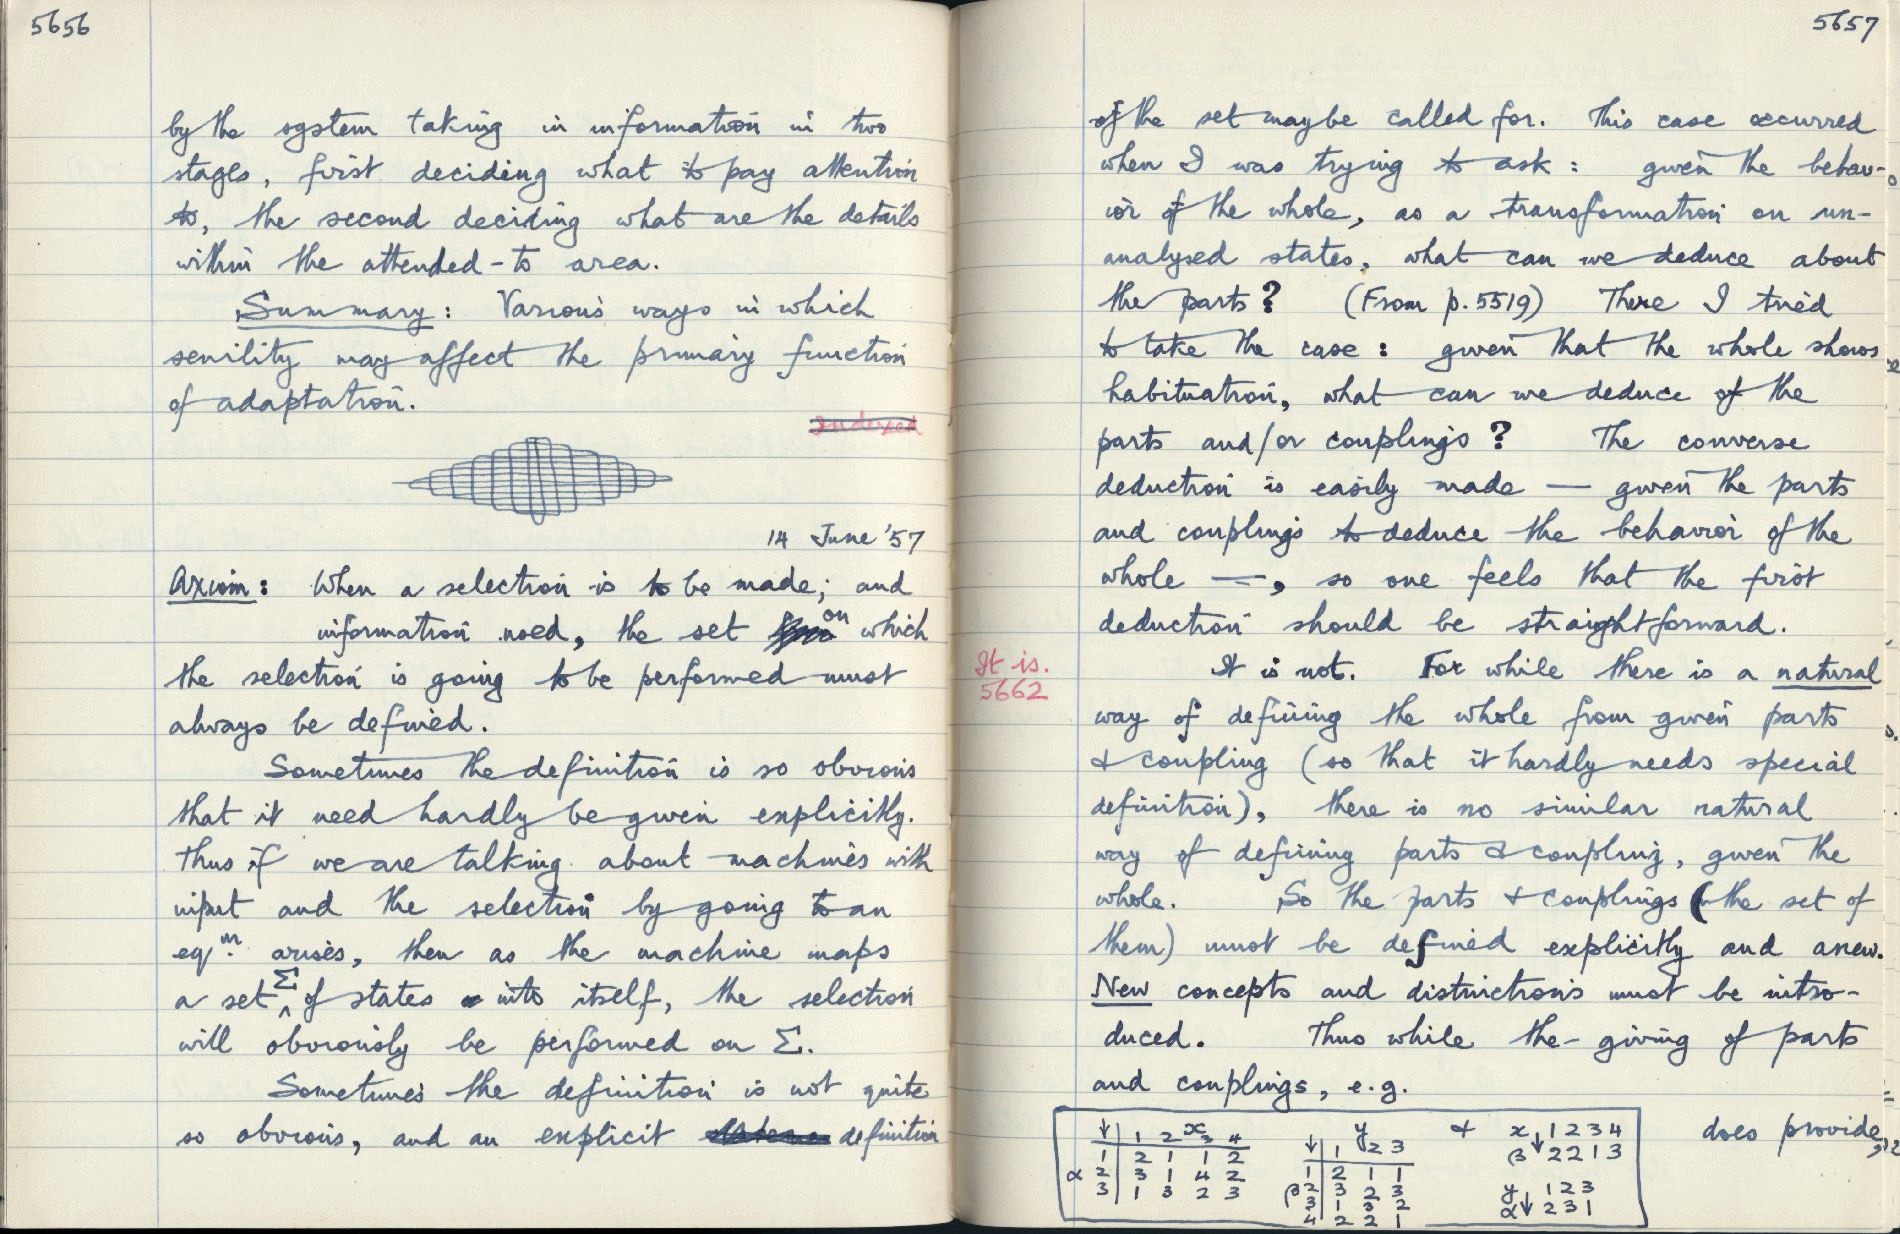 5656
by the system taking in information in two
stages, first deciding what to pay attention
to, the second deciding what are the details
within the attended-to area.
Summary: Various ways in which
senility may affect the primary function
of adaptation.
Indexed
14 June '57
Axiom: When a selection is to be made, and
information used, the set on which
the selection is going to be performed must
always be defined.
Sometimes the definition is so obvious
that it need hardly be given explicitly.
Thus if we are talking about machines with
input and the selection by going to an
eqm. arises, then as the machine maps
a set Σ of states into itself, the selection
will obviously be performed on Σ.
Sometimes the definition is not quite
so obvious, and an explicit definition
5657
of the set may be called for. This case occurred
when I was trying to ask: given the behav-
ior of the whole, as a transformation on un-
analysed states, what can we deduce about
the parts? (From p. 5519) There I tried
to take the case: given that the whole shows
habituation, what can we deduce of the
parts and/or couplings? The converse
deduction is easily made — given the parts
and couplings to deduce the behavior of the
whole —, so one feels that the first
deduction should be straightforward.
It is.
5662
It is not. For while there is a natural
way of defining the whole from given parts
& coupling (so that it hardly needs special
definition), there is no similar natural
way of defining parts & coupling, given the
whole. So the parts & couplings (the set of
them) must be defined explicitly and anew.
New concepts and distinctions must be intro-
duced. Thus while the giving of parts
and couplings, e.g.
x
↓ 1 2 3 4
1 2 1 1 2
α 2 3 1 4 2
3 1 3 2 3
y
↓ 1 2 3
1 2 1 1
β 2 3 2 3
3 1 3 2
4 2 2 1
&
x ↓ 1 2 3 4
β 2 2 1 3
y ↓ 1 2 3
α 2 3 1
does provide,